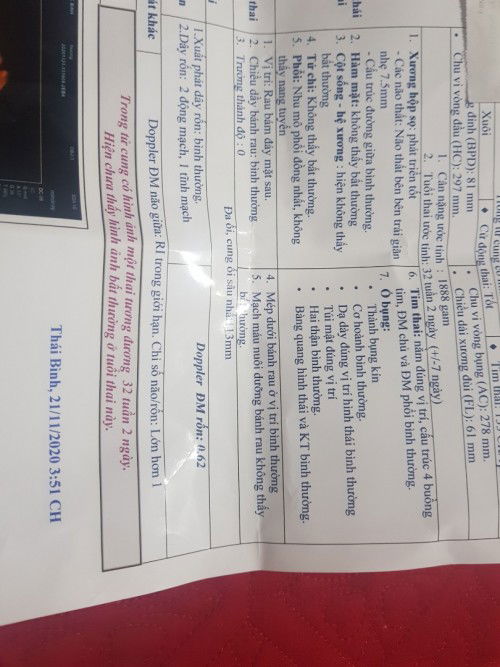 Xuôi
Cử động thai: Tốt
g đỉnh (BPD): 81 mm
• Chu vi vòng đầu (HC): 297 mm.
• Chu vi vòng bụng (AC): 278 mm.
• Chiều dài xương đùi (FL): 61 mm
1. Cân nặng ước tính : 1888 gam
2. Tuổi thai ước tính: 32 tuần 2 ngày (+/-7 ngày)
1. Xương hộp sọ: phát triển tốt
- Các não thất: Não thất bên bên trái giãn
nhẹ 7.5mm
- Cấu trúc đường giữa bình thường.
2. Hàm mặt: không thấy bất thường
3. Cột sống - hệ xương : hiện không thấy
bất thường
4. Tứ chi: Không thấy bất thường.
5. Phổi: Nhu mô phổi đồng nhất, không
thấy nang tuyến
6. Tim thai: nằm đúng vị trí, cấu trúc 4 buồng
tim, ĐM chủ và ĐM phổi bình thường.
7. Ổ bụng:
• Thành bụng kín
• Cơ hoành bình thường.
• Dạ dày đúng vị trí hình thái bình thường
• Túi mật đúng vị trí
• Hai thận bình thường.
• Bàng quang hình thái và KT bình thường.
thai
1. Vị trí: Rau bám đáy mặt sau.
2. Chiều dày bánh rau: bình thường
3. Trưởng thành độ : 0
4. Mép dưới bánh rau ở vị trí bình thường
5. Mạch máu nuôi dưỡng bánh rau không thấy
bất thường.
Dư ối, cung ối sâu nhất 113mm
1.Xuất phát dây rốn: bình thường.
2.Dây rốn: 2 động mạch, 1 tĩnh mạch
Doppler ĐM rốn: 0.62
át khác
Doppler ĐM não giữa: RI trong giới hạn. Chỉ số não/rốn: Lớn hơn 1
Trong tử cung có hình ảnh một thai tương đương 32 tuần 2 ngày.
Hiện chưa thấy hình ảnh bất thường ở tuổi thai này.
Thái Bình, 21/11/2020 3:51 CH